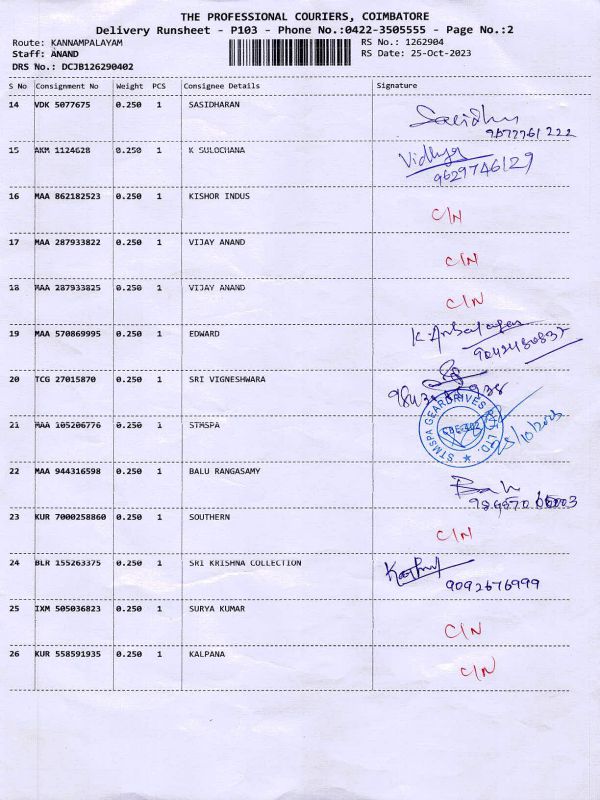 THE PROFESSIONAL COURIERS, COIMBATORE
Delivery Runsheet - P103 - Phone No.:0422-3505555 - Page No.:2
Route: KANNAMPALAYAM RS No.: 1262904
Staff: ANAND RS Date: 25-Oct-2023
DRS No.: DCJB126290402
S No Consignment No Weight PCS Consignee Details Signature
14 VDK 5077675 0.250 1 SASIDHARAN
9677761222
15 AKM 1124628 0.250 1 K SULOCHANA Vidhya
9629746129
16 MAA 862182523 0.250 1 KISHOR INDUS C/N
17 MAA 287933822 0.250 1 VIJAY ANAND C/N
18 MAA 287933825 0.250 1 VIJAY ANAND C/N
19 MAA 570869995 0.250 1 EDWARD
20 TCG 27015870 0.250 1 SRI VIGNESHWARA
21 MAA 105206776 0.250 1 STMSPA STMSPA GEARDRIVES PVT LTD.
22 MAA 944316598 0.250 1 BALU RANGASAMY
23 KUR 7000258860 0.250 1 SOUTHERN C/N
24 BLR 155263375 0.250 1 SRI KRISHNA COLLECTION
9092676999
25 IXM 505036823 0.250 1 SURYA KUMAR C/N
26 KUR 558591935 0.250 1 KALPANA C/N